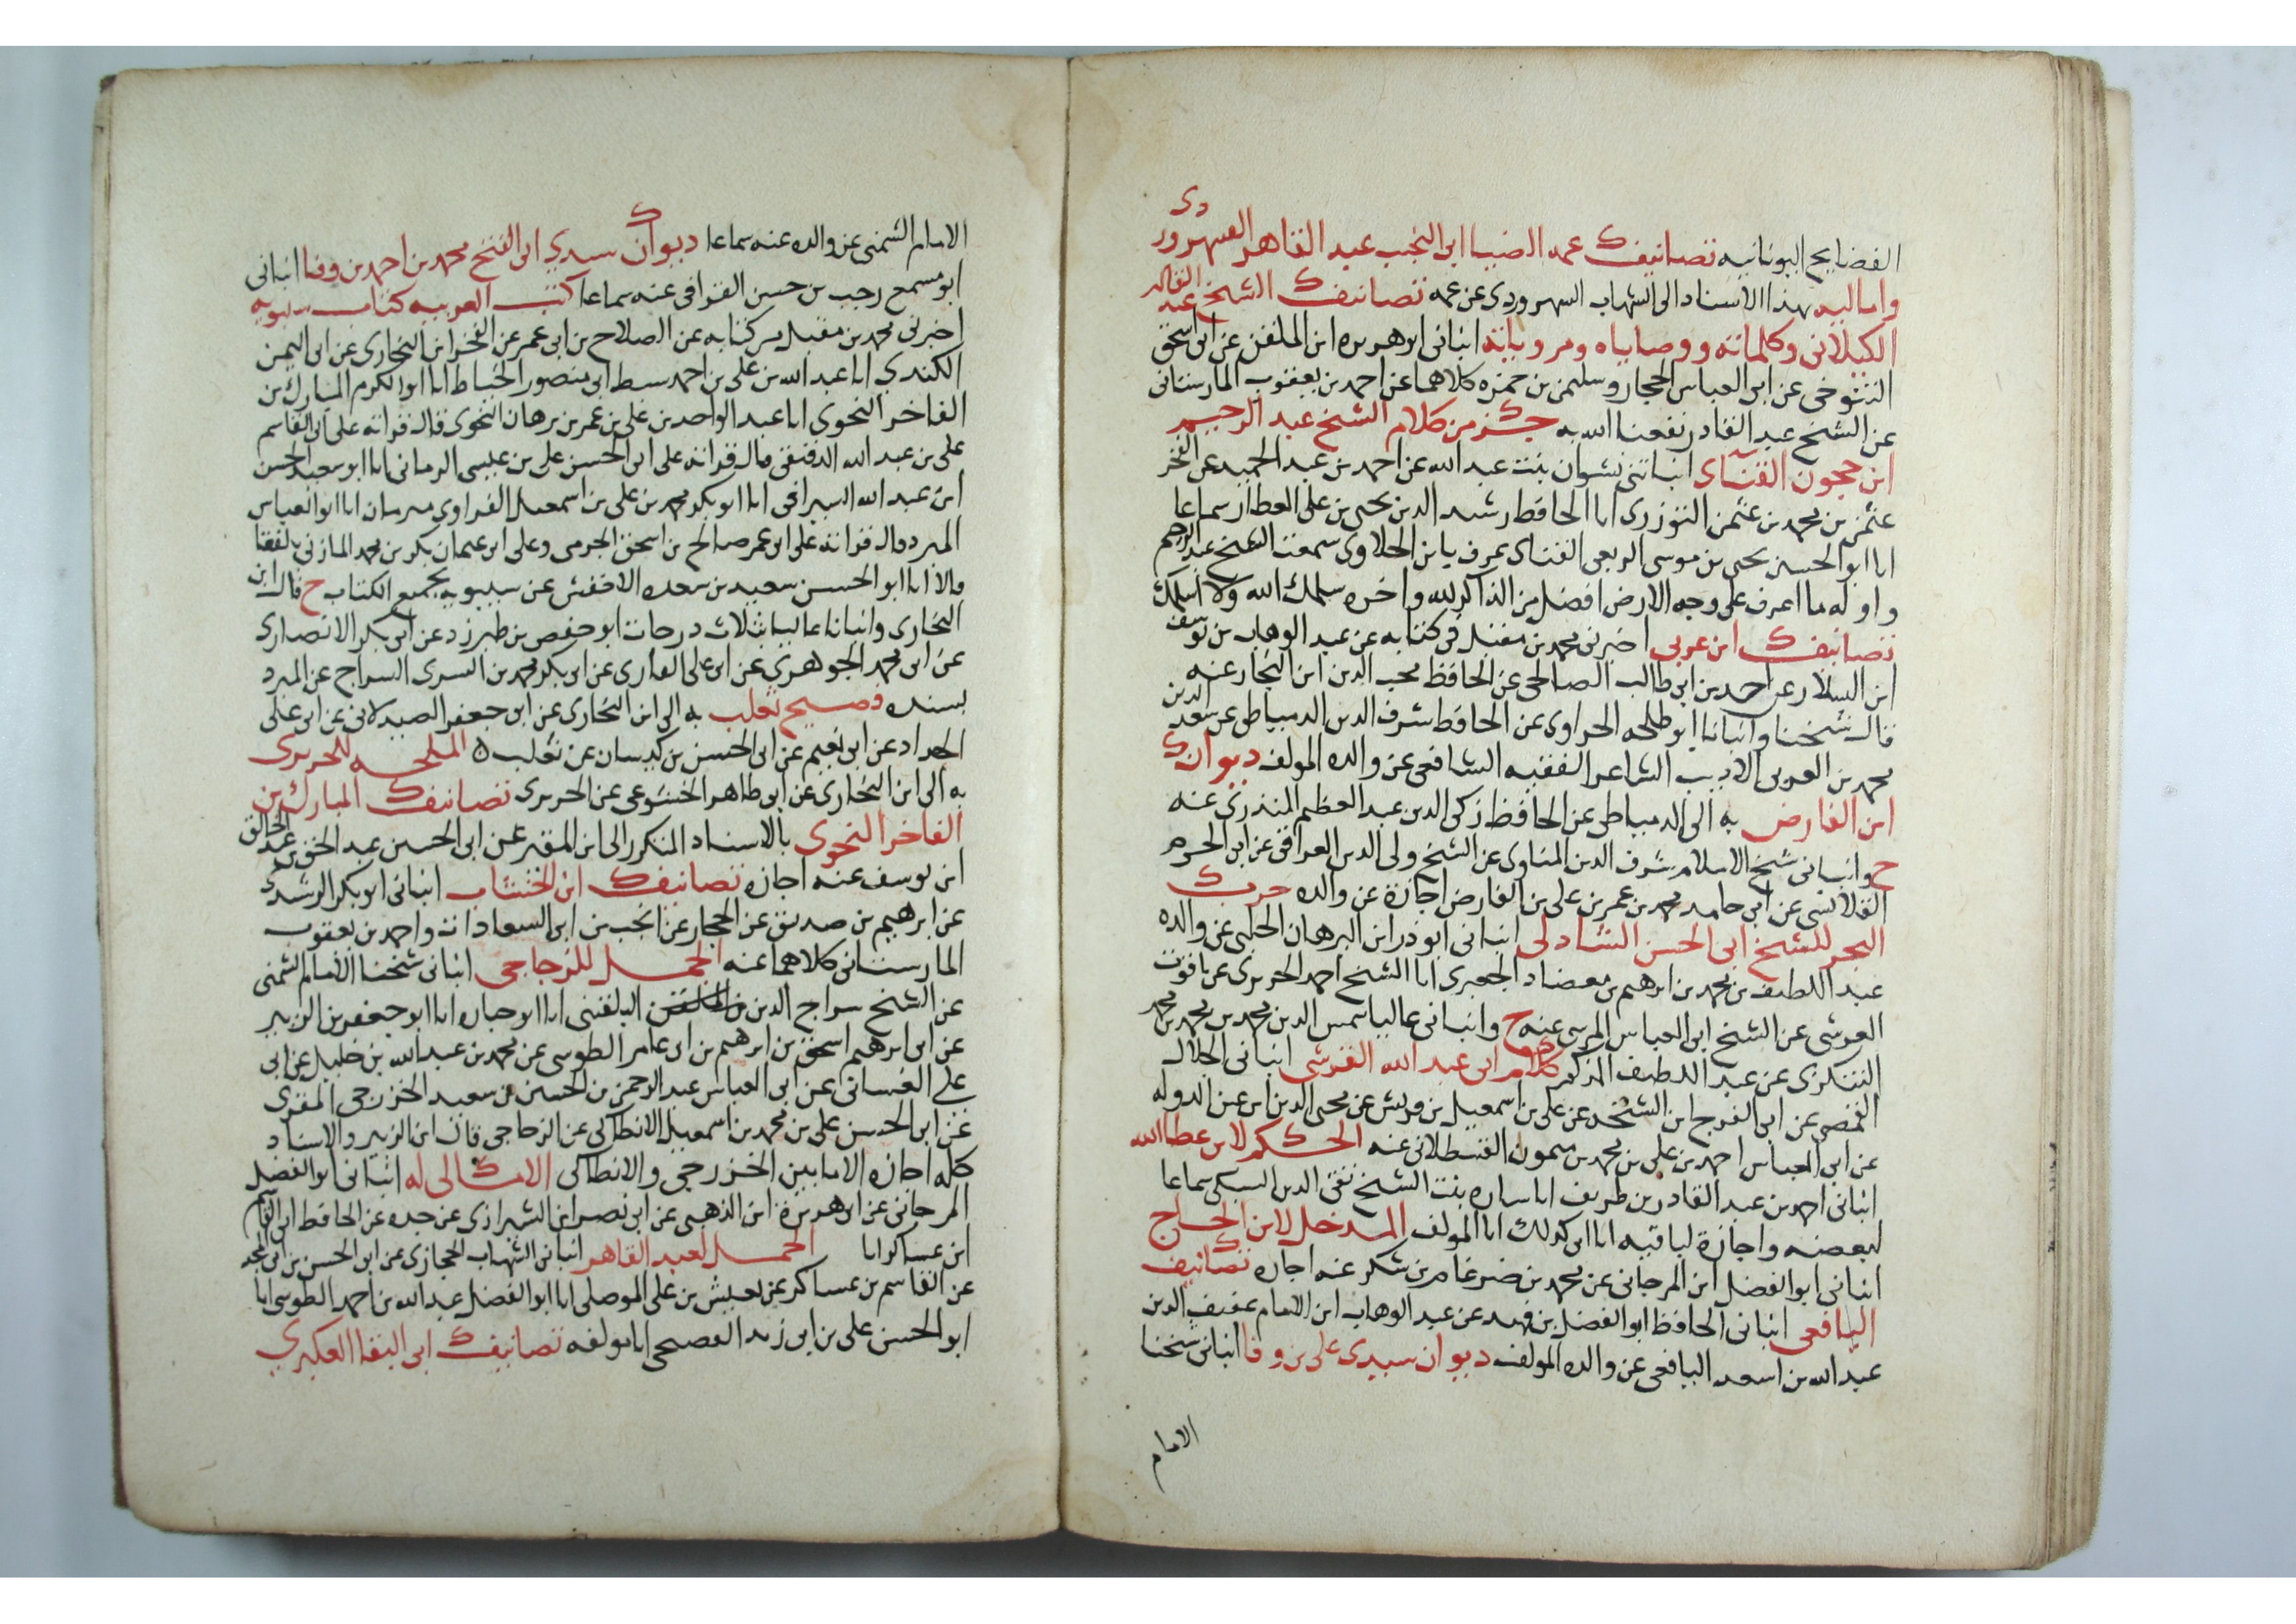 الفضايح اليونانيه تصانيف عمه الضيا ابى النجيب عبد القاهر السهروردى
واماليه بهذا الاسناد الى الشهاب السهروردى عن عمه تصانيف الشيخ عبد القادر
الكيلانى وكلماته ووصاياه ومروياته انبانى ابو هريره ابن الملقن عن ابى اسحق
التنوخى عن ابى العباس الحجار وسليمن بن حمزه كلاهما عن احمد بن يعقوب المارستانى
عن الشيخ عبد القادر نفعنا الله به جزء من كلام الشيخ عبد الرحيم
ابن حجون القناى انباتنى نشوان بنت عبد الله عن احمد بن عبد الحميد عن الفخر
عثمن بن محمد بن عثمن التوزرى انا الحافظ رشيد الدين يحيى بن على العطار سماعا
انا ابو الحسين يحيى بن موسى الربعى القناى عرف بابن الحلاوى سمعت الشيخ عبد الرحيم
واوله ما اعرف على وجه الارض افضل من الذاكر لله واخره سلمك الله ولا اسلمك
تصانيف ابن عربى اخبرنى محمد بن مقبل فى كتابه عن عبد الوهاب بن يوسف
ابن السلار عن احمد بن ابى طالب الصالحى عن الحافظ محب الدين ابن النجار عنه
قال شيخنا وانبانا ابو طلحه الحراوى عن الحافظ شرف الدين الدمياطى عن سعد الدين
محمد بن العربى الاديب الشاعر الفقيه الشافعى عن والده المولف ديوان
ابن الفارض به الى الدمياطى عن الحافظ زكى الدين عبد العظيم المنذرى عنه
ح وانبانى شيخ الاسلام شرف الدين المناوى عن الشيخ ولى الدين العراقى عن ابى الحرم
القلانسى عن ابى حامد محمد بن عمر بن على بن الفارض اجازة عن والده حزب
البحر للشيخ ابى الحسن الشاذلى انبانى ابو ذر ابن البرهان الحلبى عن والده
عبد اللطيف بن محمد بن ابرهيم بن معضاد الجعبرى انا الشيخ احمد الحريرى عن ياقوت
العرشى عن الشيخ ابى العباس المرسى عنه ح وانبانى عاليا شمس الدين محمد بن محمد بن محمد
التنكزى عن عبد اللطيف المذكور كلام ابى عبد الله القرشى انبانى الجلال
القمصى عن ابى الفرج ابن الشيخه عن على بن اسمعيل بن قريش عن محيى الدين ابى عن الدوله
عن ابى العباس احمد بن على بن محمد بن ميمون القسطلانى عنه الحكم لابن عطا الله
انبانى احمد بن عبد القادر بن طريف انا ساره بنت الشيخ تقى الدين السبكى سماعا
لبعضه واجازة لباقيه انا ابى كذلك انا المولف المدخل لابن الحاج
انبانى ابو الفضل ابن المرجانى عن محمد بن ضرغام بن شكر عنه اجازه تصانيف
اليافعى انبانى الحافظ ابو الفضل بن فهد عن عبد الوهاب ابن الامام عفيف الدين
عبد الله بن اسعد اليافعى عن والده المولف ديوان سيدى على بن وفا انبانى شيخنا
الامام
الامام الشمنى عن والده عنه سماعا ديوان سيدي ابى الفتح محمد بن احمد بن وفا انبانى
ابو مسمح رجب بن حسين القرافى عنه سماعا كتب العربيه كتاب سيبويه
اخبرنى محمد بن مقبل من كتابه عن الصلاح بن ابى عمر عن الفخر ابن البخارى عن ابى اليمن
الكندي انا عبد الله بن على بن احمد سبط ابى منصور الخياط انا ابو الكرم المبارك بن
الفاخر النحوى انا عبد الواحد بن على بن عمر بن برهان النحوى قال قراته على ابى القاسم
على بن عبد الله الدقيقى قال قراته على ابى الحسن على بن عيسى الرمانى انا ابو سعيد الحسن
ابن عبد الله السيرافى انا ابو بكر محمد بن على بن اسمعيل الفراوى مبرمان انا ابو العباس
المبرد قال قراته على ابى عمر صالح بن اسحق الجرمى وعلى ابى عثمان بكر بن محمد المازنى
قالا انا ابو الحسن سعيد بن مسعده الاخفش عن سيبويه بجميع الكتاب ح قال ابن
البخارى وانبانا عاليا بثلاث درجات ابو حفص بن طبرزد عن ابى بكر الانصارى
عن ابى محمد الجوهرى عن ابى على الفارى عن ابى بكر محمد بن السرى السراج عن المبرد
بسنده فصيح ثعلب به الى ابن البخارى عن ابى جعفر الصيدلانى عن ابى على
الحداد عن ابى نعيم عن ابى الحسن بن كيسان عن ثعلب ه الملحه للحريرى
به الى ابن البخارى عن ابى طاهر الخشوعى عن الحريرى تصانيف المبارك بن
الفاخر النحوى بالاسناد المتكرر الى ابن المقير عن ابى الحسين عبد الحق بن عبد الخالق
ابن يوسف عنه اجازه تصانيف ابن الخشاب انبانى ابو بكر المرشدى
عن ابرهيم بن صديق عن الحجار عن انجب بن ابى السعادات واحمد بن يعقوب
المارستانى كلاهما عنه الجمل للزجاجى انبانى شيخنا الامام الشمنى
عن الشيخ سراج الدين البلقينى انا ابو حيان انا ابو جعفر بن الزبير
عن ابى ابرهيم اسحق بن ابرهيم بن ابى عامر الطوسى عن محمد بن عبد الله بن خليل عن ابى
على الغسانى عن ابى العباس عبد الرحمن بن الحسين بن سعيد الخزرجى المقرى
عن ابى الحسن على بن محمد بن اسمعيل الانطاكى عن الزجاجى قال ابن الزبير والاسناد
كله اجازه الا ما بين الخزرجى والانطاكى الامالى له انبانى ابو الفضل
المرجانى عن ابى هريرة ابن الذهبى عن ابى نصر ابن الشيرازى عن جده عن الحافظ ابى القاسم
ابن عساكر انا الجمل لعبد القاهر انبانى الشهاب الحجازى عن ابى الحسن بن ابى المجد
عن القاسم بن عساكر عن يعيش بن على الموصلى انا ابو الفضل عبد الله بن احمد الطوسى انا
ابو الحسن على بن ابى زيد الفصيحى انا مولفه تصانيف ابى البقا العكبري